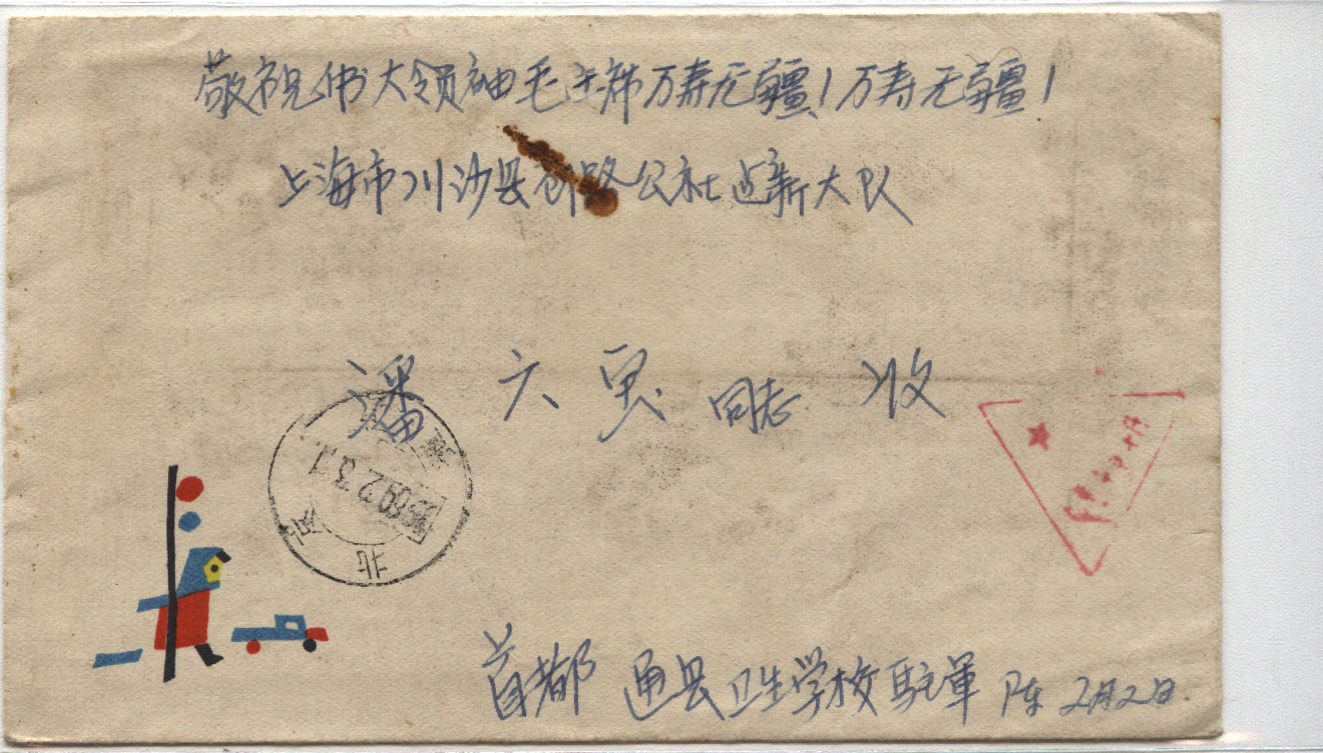 敬祝伟大领袖毛主席万寿无疆!万寿无疆!
上海市川沙县 路公社 新大队
潘六 同志 收
北京
69.2.3.
首都 通县卫生学校驻軍 陈 2月2日.